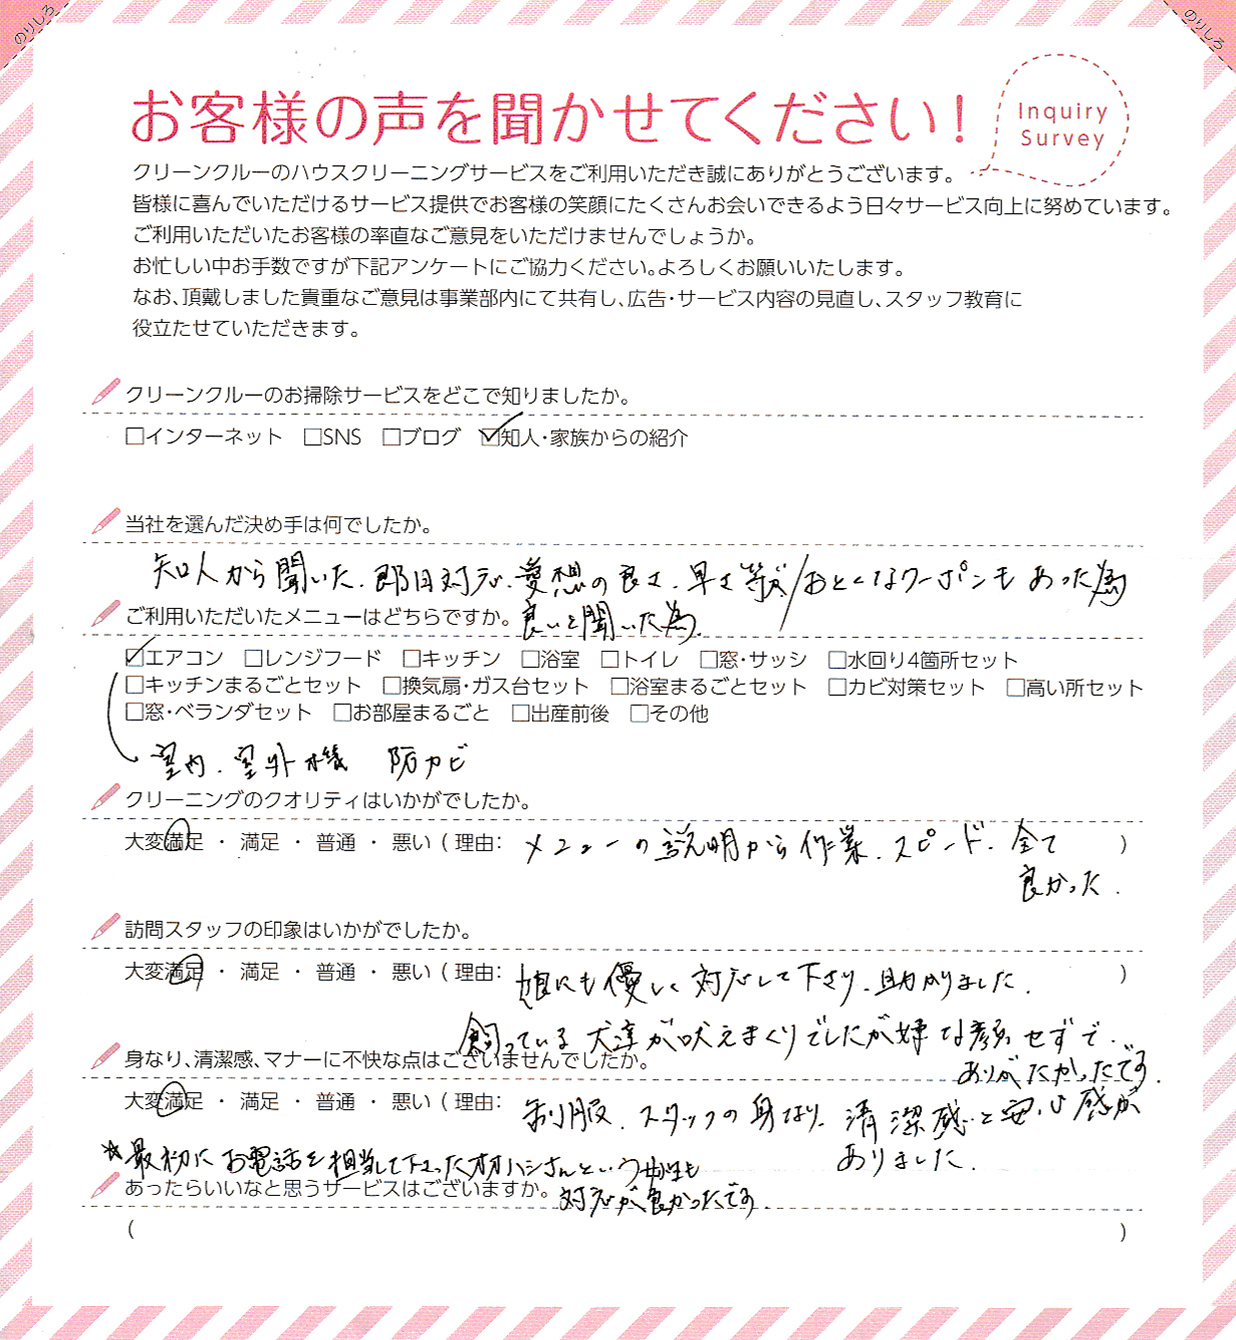 のりしろ
のりしろ
お客様の声を聞かせてください!
Inquiry
Survey
クリーンクルーのハウスクリーニングサービスをご利用いただき誠にありがとうございます。
皆様に喜んでいただけるサービス提供でお客様の笑顔にたくさんお会いできるよう日々サービス向上に努めています。
ご利用いただいたお客様の率直なご意見をいただけませんでしょうか。
お忙しい中お手数ですが下記アンケートにご協力ください。よろしくお願いいたします。
なお、頂戴しました貴重なご意見は事業部内にて共有し、広告・サービス内容の見直し、スタッフ教育に
役立たせていただきます。
クリーンクルーのお掃除サービスをどこで知りましたか。
□インターネット □SNS □ブログ ☑知人・家族からの紹介
当社を選んだ決め手は何でしたか。
知人から聞いた.即日対応.愛想の良さ.早さ等が/おとくなクーポンもあった為
良いと聞いた為.
ご利用いただいたメニューはどちらですか。
☑エアコン □レンジフード □キッチン □浴室 □トイレ □窓・サッシ □水回り4箇所セット
□キッチンまるごとセット □換気扇・ガス台セット □浴室まるごとセット □カビ対策セット □高い所セット
□窓・ベランダセット □お部屋まるごと □出産前後 □その他
室内.室外機 防カビ
クリーニングのクオリティはいかがでしたか。
大変満足 ・ 満足 ・ 普通 ・ 悪い ( 理由: メニューの説明から作業.スピード.全て )
良かった.
訪問スタッフの印象はいかがでしたか。
大変満足 ・ 満足 ・ 普通 ・ 悪い ( 理由: 娘にも優しく対応して下さり.助かりました. )
飼っている犬達が吠えまくりでしたが嫌な顔せずで.
ありがたかったです.
身なり、清潔感、マナーに不快な点はございませんでしたか。
大変満足 ・ 満足 ・ 普通 ・ 悪い ( 理由: 制服.スタッフの身なり.清潔感と安心感が
ありました.
☆最初にお電話を担当して下さったオオハシさんという女性も
対応が良かったです.
あったらいいなと思うサービスはございますか。
( )